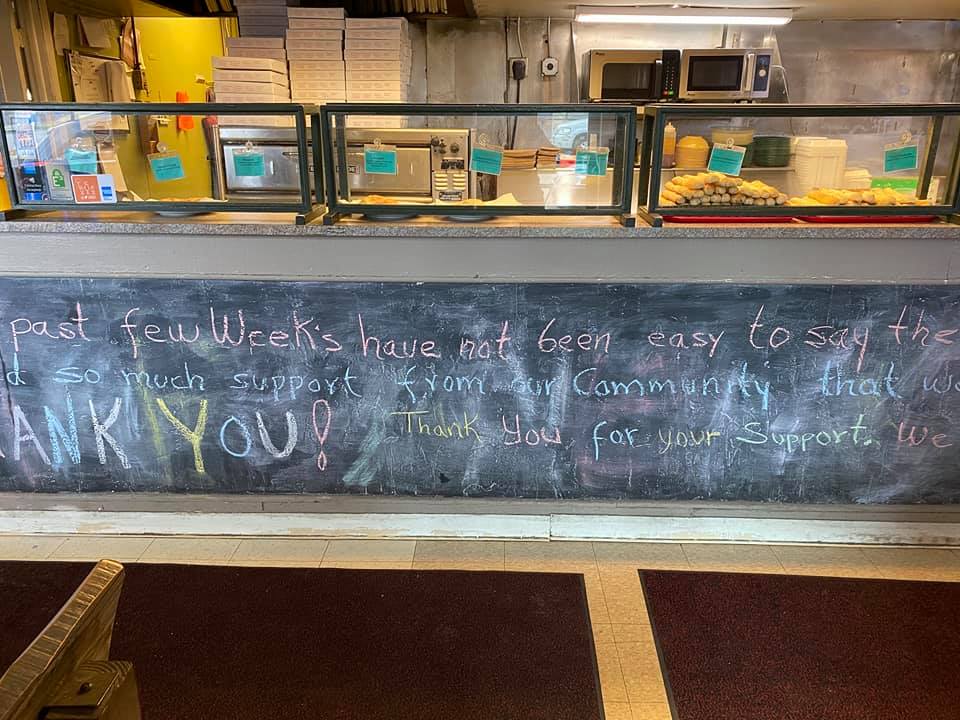 past few Week's have not been easy to say the
so much support from our Community that
ANK YOU! Thank You for your Support. We